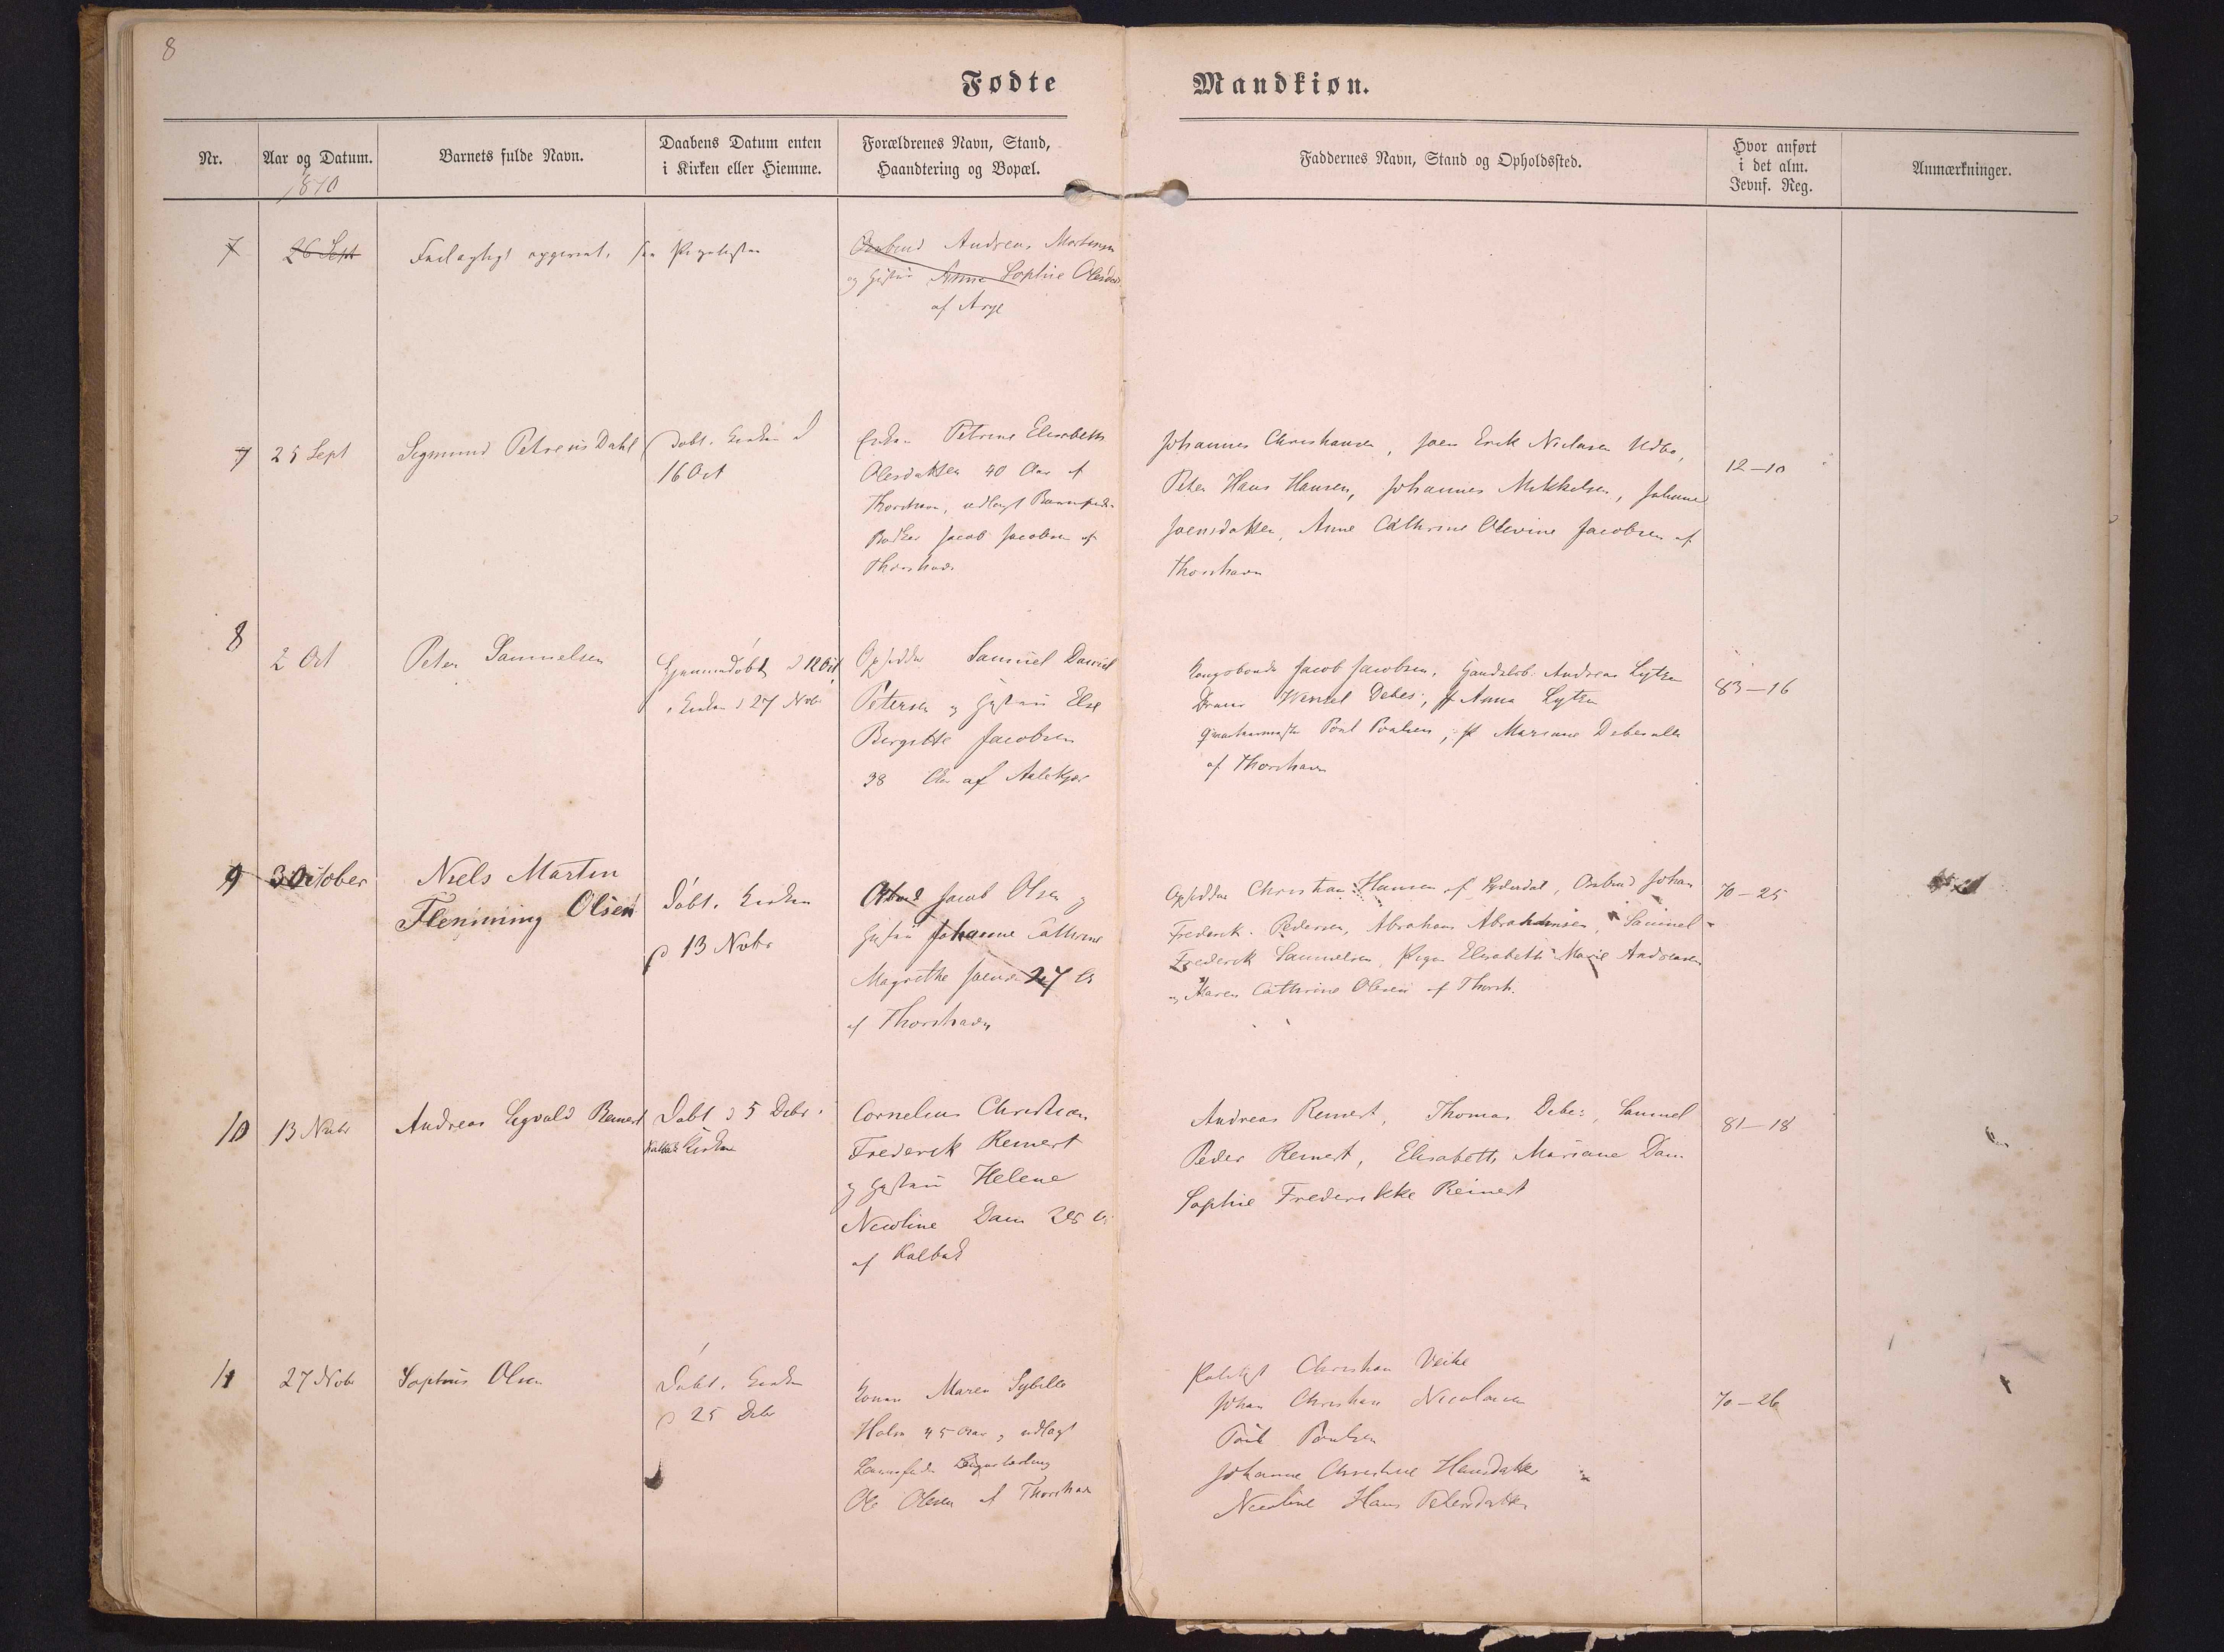 8
Fødte Mandkiøn.
Nr.
Aar og Datum.
1870
Barnets fulde Navn.
Daabens Datum enten
i Kirken eller Hiemme.
Forældrenes Navn, Stand,
Haandtering og Bopæl.
Faddernes Navn, Stand og Opholdssted.
Hvor anført
i det alm.
Jevnf. Reg.
Anmærkninger.
7
26 Sept
Andreas Mortensen
og Hustru Anne Sophie Olesdatter
af Arge
7
25 Sept
Sigmund Petreus Dahl
Døbt i Kirken d
16 Oct
Petrine Elisabeth
Olesdatter 40 Aar af
Thorshavn, udlagt Barnefader
Jacob Jacobsen af
Thorshavn
Johannes Christiansen, Joen Erik Niclasen
Peter Hans Hansen, Johannes Mikkelsen, Johanne
Joensdatter, Anne Cathrine Olevine Jacobsen af
Thorshavn
12-10
8
2 Oct
Peter Samuelsen
Hjemmedøbt d 12 Oct
i Kirken d 27 Nobr
Opsidder Samuel Daniel
Petersen og Hustru Else
Birgitte Jacobsen
38 Aar af
Kongsbonde Jacob Jacobsen, Andreas Lytzen
Wenzel Debes, Anna Lytzen
Poul Poulsen, Mariane Debes alle
af Thorshavn
83-16
9
3 October
Niels Martin
Flemming Olsen
Døbt i Kirken
d 13 Nobr
Jacob Olsen og
Hustru Johanne Cathrine
Magrethe Joensen 27 A
af Thorshavn
Opsidder Christian Hansen af Johan
Frederik Pedersen, Abraham Abrahamsen, Samuel
Frederik Samuelsen, Pigen Elisabeth Marie Andreasen
og Maren Cathrine Olesen af Thorsh.
70-25
10
13 Nobr
Andreas Sigvald Reinert
Døbt d 5 Debr i
Kalbak Kirke
Cornelius Christian
Frederik Reinert
og Hustru Helene
Nicoline Dam
af Kalbak
Andreas Reinert, Thomas Debes, Samuel
Peder Reinert, Elisabeth Mariane Dam
Sophie Frederikke Reinert
81-18
11
27 Nobr
Sophus Olsen
Døbt i Kirken
d 25 Debr
Konen Maren Sybille
Holm 45 Aar, udlagt
Barnefader
Ole Olesen af Thorshavn
Christian Veihe
Johan Christian Nicolaisen
Poul Poulsen
Johanne Christine Hansdatter
Nicoline Hans Petersdatter
70-26